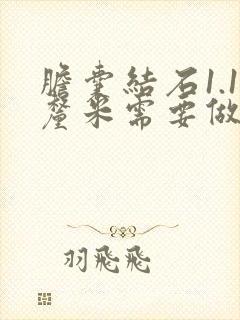 膽囊結石1.1
釐米需要做
羽飛飛